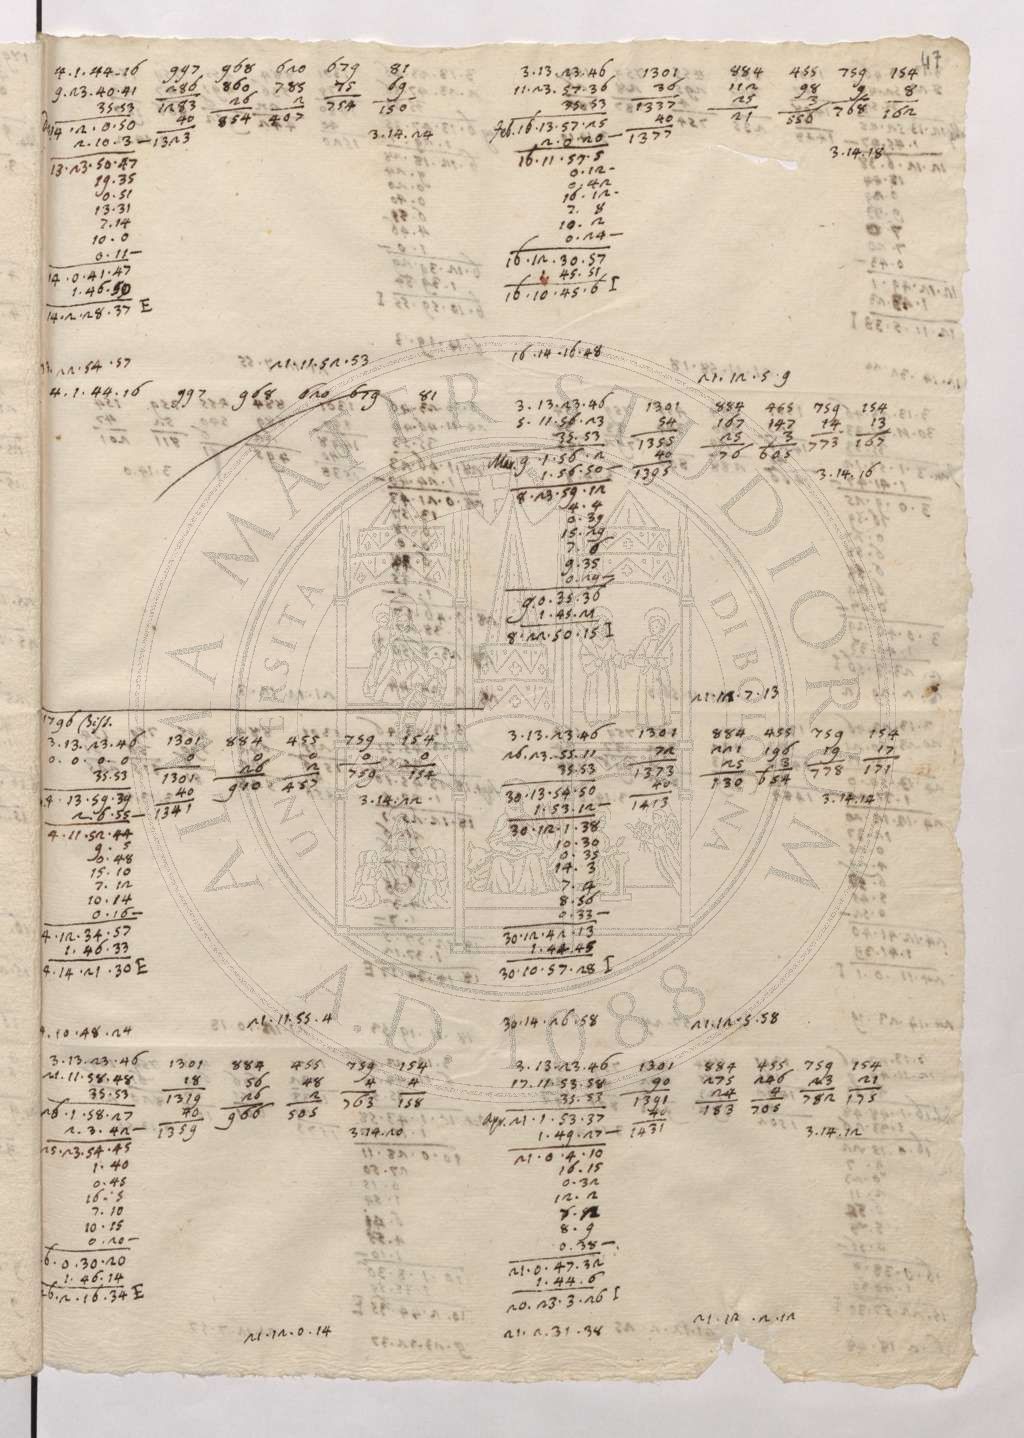 47
4.1.44.16 997 968 620 679 81
9.23.40.41 286 860 785 75 69
35.53 1283 26 2 754 150
14.2.0.50 40 854 407
2.10.3— 1323 3.14.24
13.23.50.47
19.35
0.51
13.31
7.14
10.0
0.11—
14.0.41.47
1.46.50
14.2.28.37 E
21.11.52.53
4.1.44.16 997 968 620 679 81
3.13.23.46 1301 884 455 759 154
11.23.57.36 36 112 98 9 8
35.53 1337 25 3 768 162
feb. 16.13.57.25 40 21 556
2.0.20— 1377
16.11.57.5 3.14.18
0.12—
0.42
16.12—
7.8
10.2
0.24—
16.12.30.57
1.45.51
16.10.45.6 I
16.14.16.48
21.12.5.9
3.13.23.46 1301 884 455 759 154
5.11.56.23 54 167 147 14 13
35.53 1355 25 3 773 167
Mar. 9.1.56.2 40 76 605
1.56.50— 1395 3.14.16
8.23.59.12
4.4
0.39
15.29
7.6
9.35
0.29—
9.0.35.36
1.45.21
8.22.50.15 I
21.12.7.13
1796 Biss.
3.13.23.46 1301 884 455 759 154
0.0.0.0 0 0 0 0 0
35.53 1301 26 2 759 154
4.13.59.39 40 910 457
2.6.55— 1341 3.14.22
4.11.52.44
9.5
0.48
15.10
7.12
10.14
0.16—
4.12.34.57
1.46.33
4.14.21.30 E
21.11.55.4
4.10.48.24
3.13.23.46 1301 884 455 759 154
21.11.58.48 18 56 48 4 4
35.53 1319 26 2 763 158
26.1.58.27 40 966 505
2.3.42— 1359 3.14.20
25.23.54.45
1.40
0.45
16.5
7.10
10.15
0.20—
6.0.30.20
1.46.14
26.2.16.34 E
21.12.0.14
3.13.23.46 1301 884 455 759 154
26.23.55.11 72 221 196 19 17
35.53 1373 25 3 778 171
30.13.54.50 40 130 654
1.53.12— 1413 3.14.14
30.12.1.38
10.30
0.35
14.3
7.4
8.56
0.33—
30.12.42.13
1.44.45
30.10.57.28 I
30.14.26.58 21.12.5.58
3.13.23.46 1301 884 455 759 154
17.11.53.58 90 275 246 23 21
35.53 1391 24 4 782 175
apr. 21.1.53.37 40 183 705
1.49.27— 1431 3.14.12
21.0.4.10
16.15
0.32
12.2
8.9
0.38—
21.0.47.32
1.44.6
20.23.3.26 I
21.12.2.12
21.2.31.38
ALMA MATER STUDIORUM
UNIVERSITA DI BOLOGNA
A.D. 1088